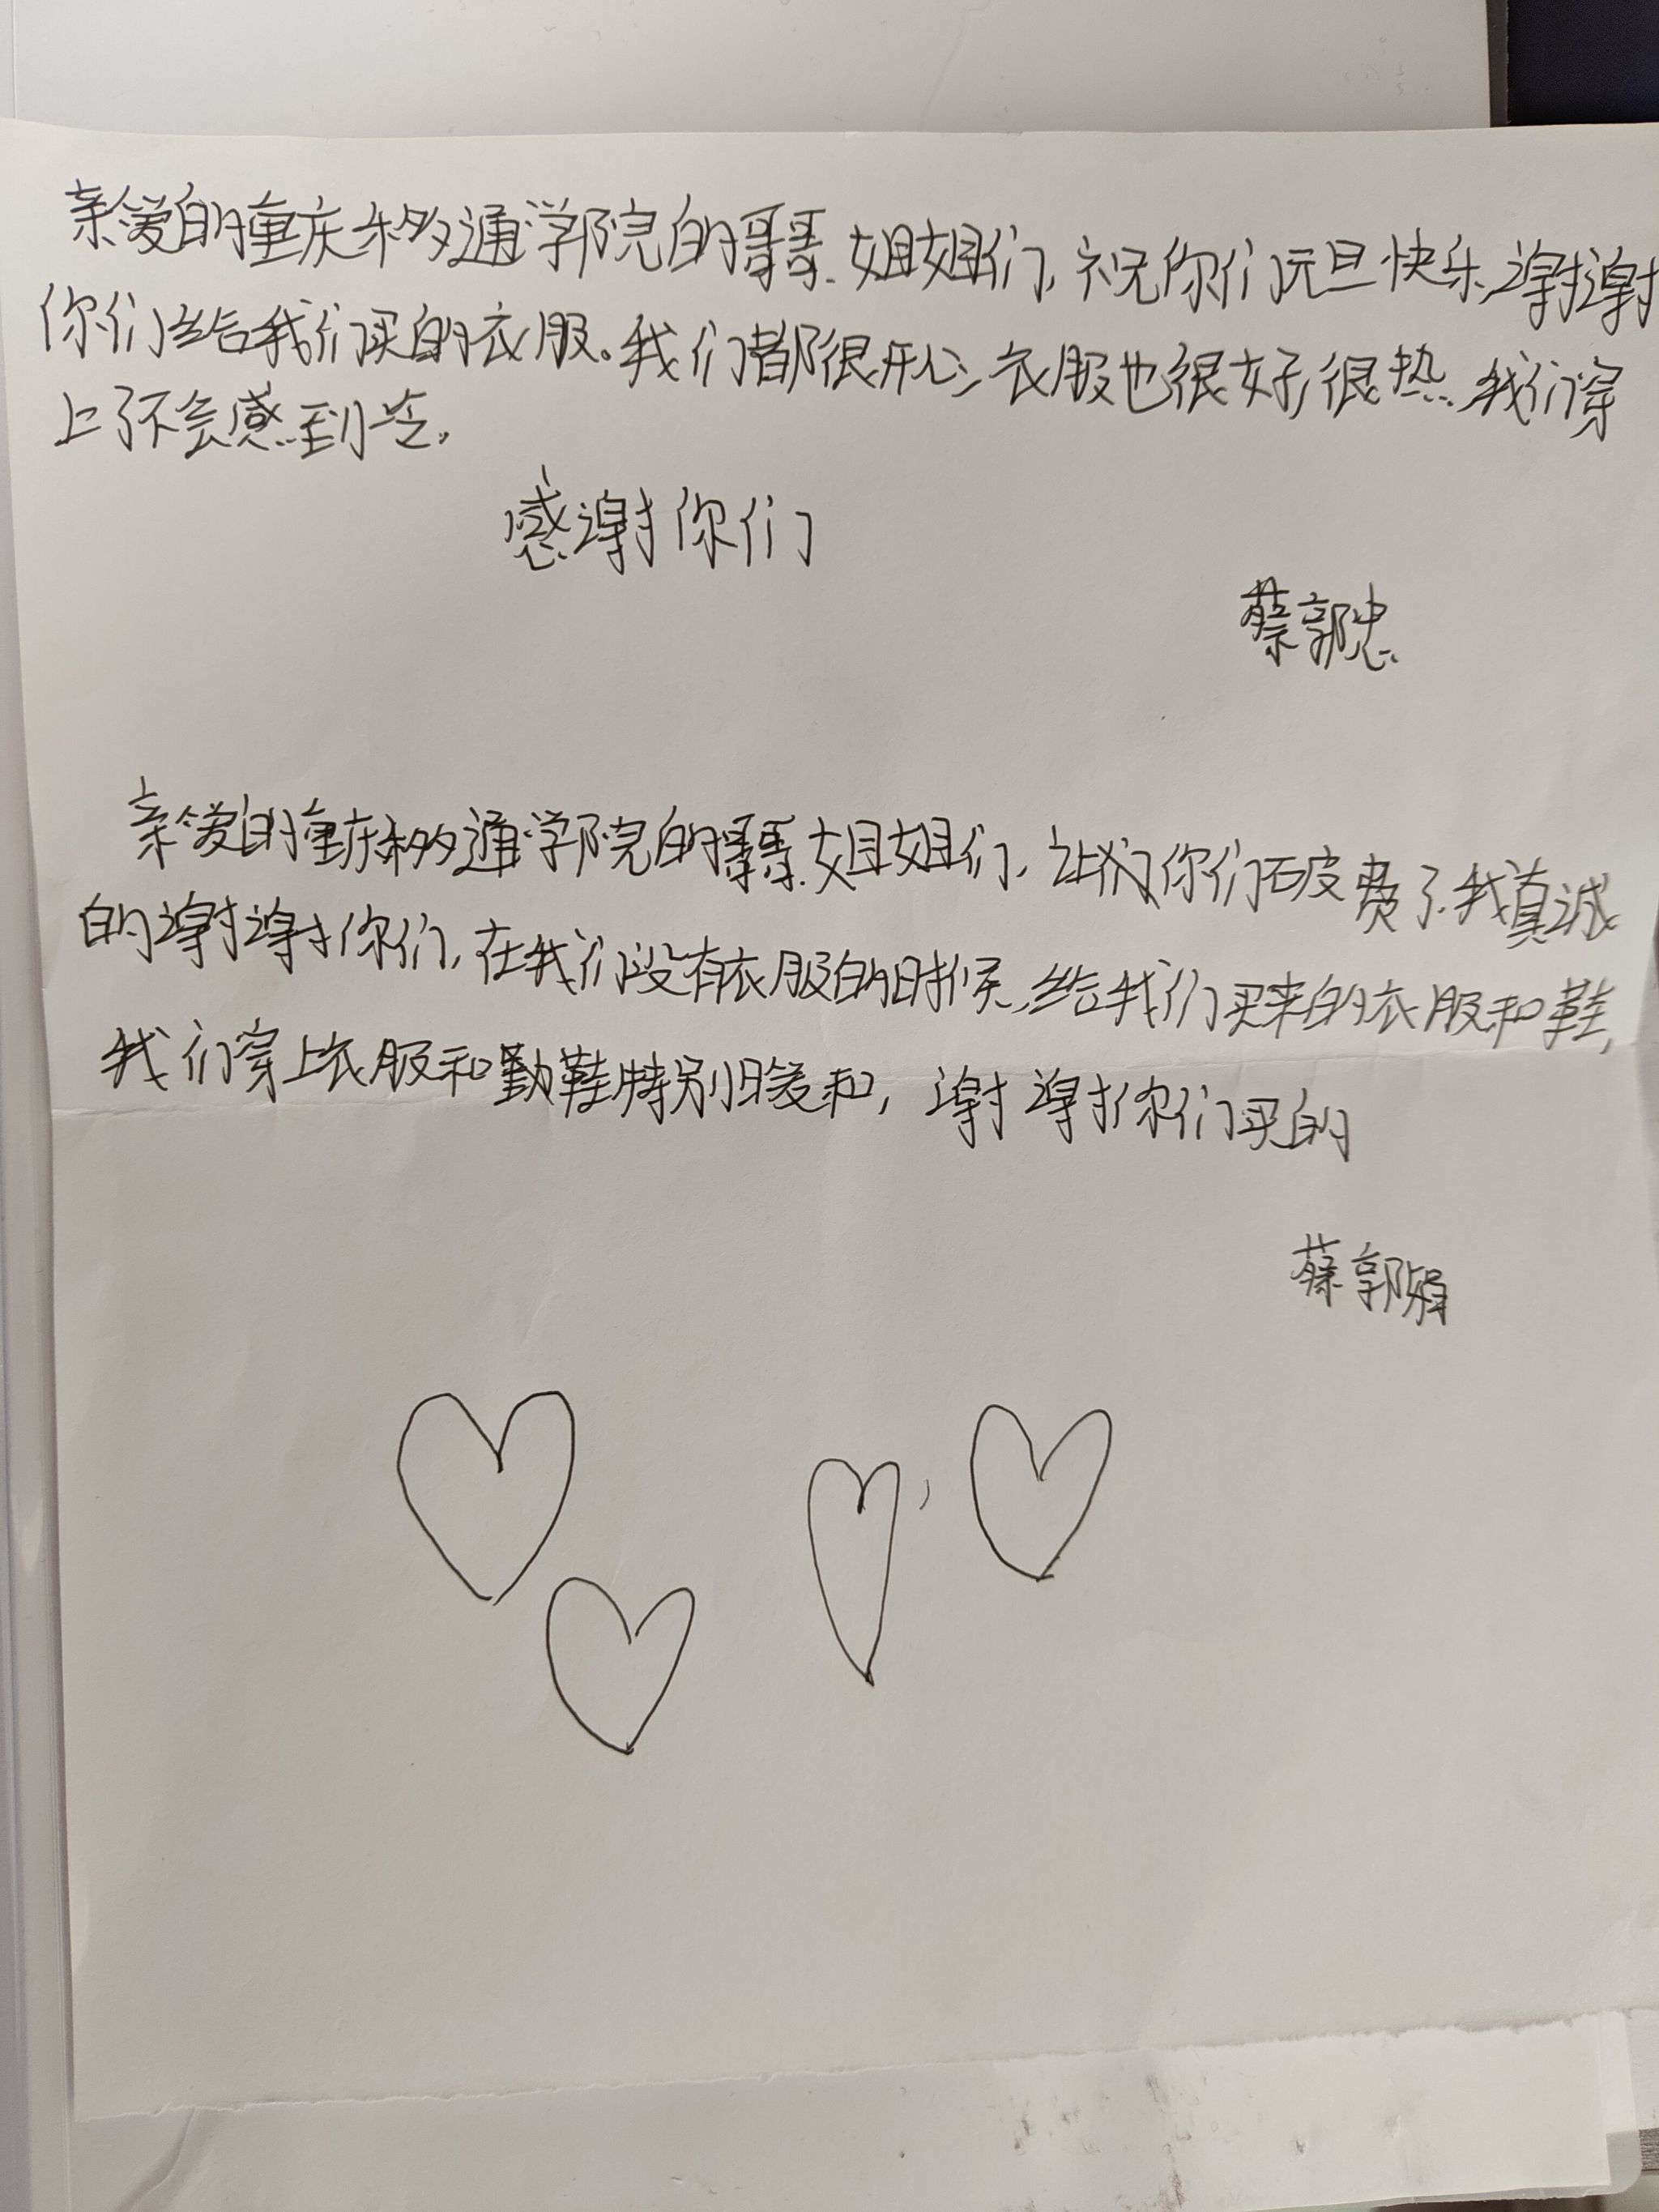 亲爱的重庆移通学院的哥哥.姐姐们,祝你们元旦快乐,谢谢
你们给我们买的衣服。我们都很开心,衣服也很好,很热.我们穿
上了不会感到冷,
感谢你们
蔡郭忠
亲爱的重庆移通学院的哥哥.姐姐们,让你们破费了.我真诚
的谢谢你们,在我们没有衣服的时候,给我们买来的衣服和鞋,
我们穿上衣服和鞋特别暖和,谢谢你们买的
蔡郭娟